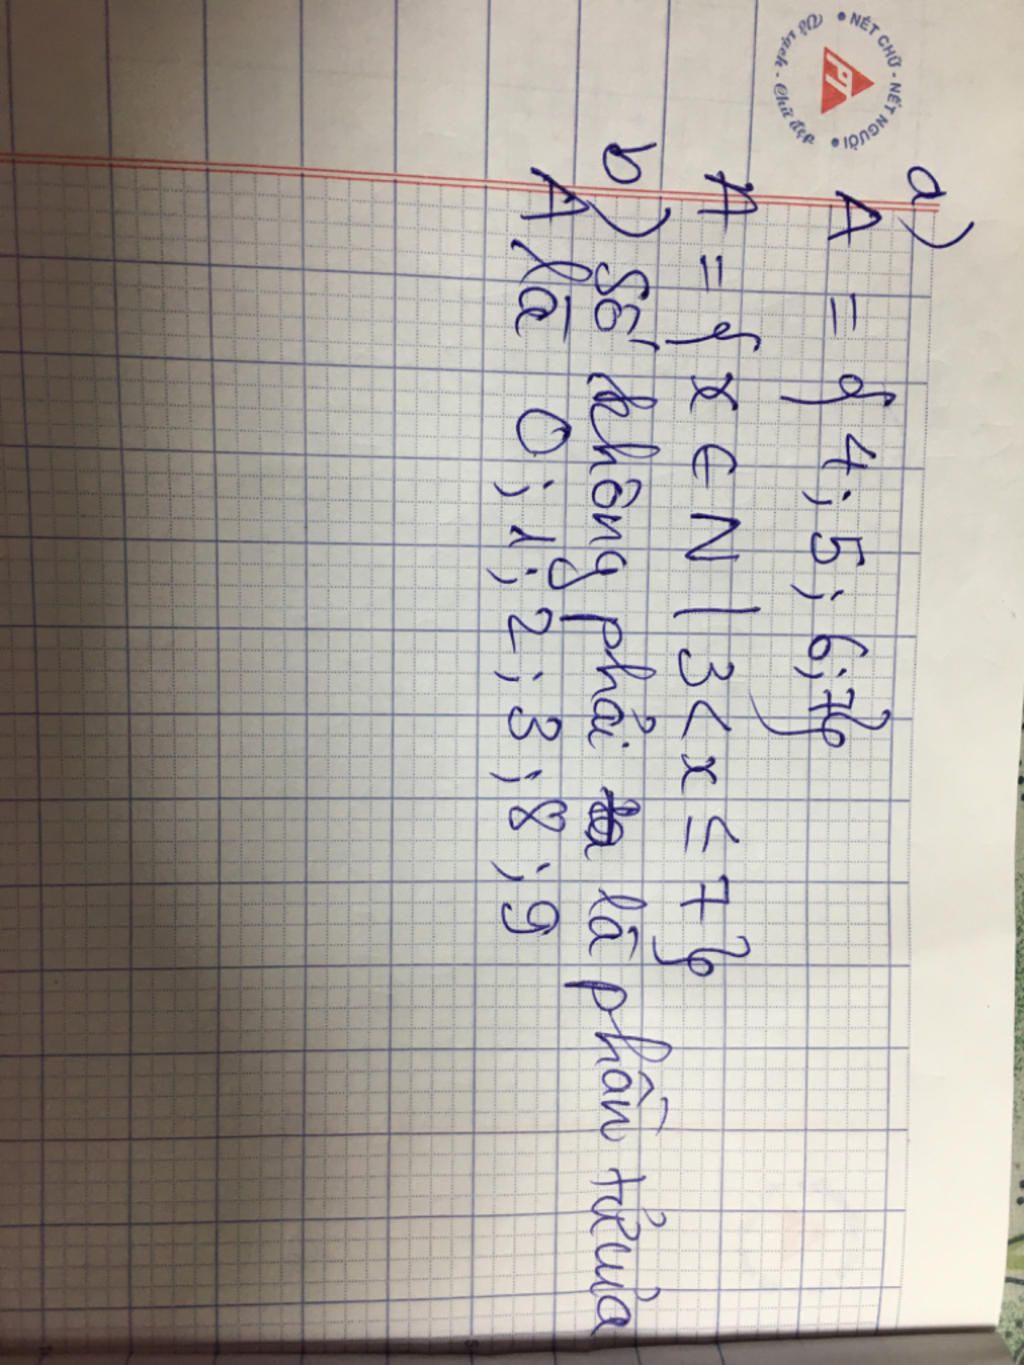 NÉT CHỮ - NẾT NGƯỜI
Vở sạch - Chữ đẹp
a)
A = { 4; 5; 6; 7}
A = { x ∈ N | 3 < x ≤ 7}
b) Số không phải là phần tử của
A là 0; 1; 2; 3; 8; 9